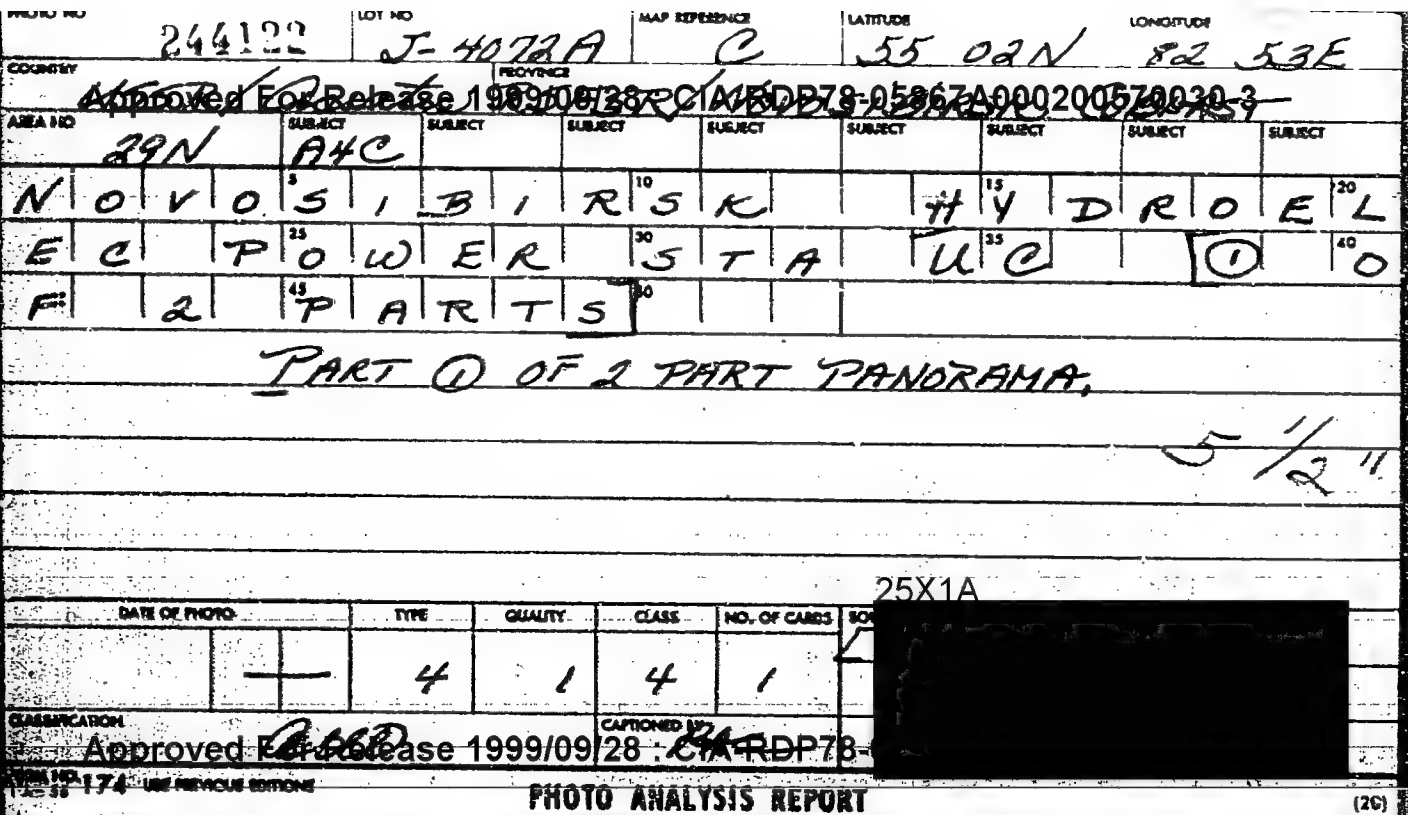 PHOTO NO LOT NO MAP REFERENCE LATITUDE LONGITUDE
244122 J-4072A C 55 02N 82 53E
COUNTRY PROVINCE
Approved For Release 1999/09/28 : CIA-RDP78-05867A000200570030-3
AREA NO SUBJECT SUBJECT SUBJECT SUBJECT SUBJECT SUBJECT SUBJECT SUBJECT
29N A4C
5 10 15 20
NOVOSIBIRSK HYDROEL
25 30 35 40
EC POWER STA UC ① O
45 50
F 2 PARTS
PART ① OF 2 PART PANORAMA.
5 1/2 "
25X1A
DATE OF PHOTO TYPE QUALITY CLASS NO. OF CARDS
4 1 4 1
CLASSIFICATION CAPTIONED BY
Approved For Release 1999/09/28 : CIA-RDP78-
FORM NO. 174 USE PREVIOUS EDITIONS
PHOTO ANALYSIS REPORT (20)